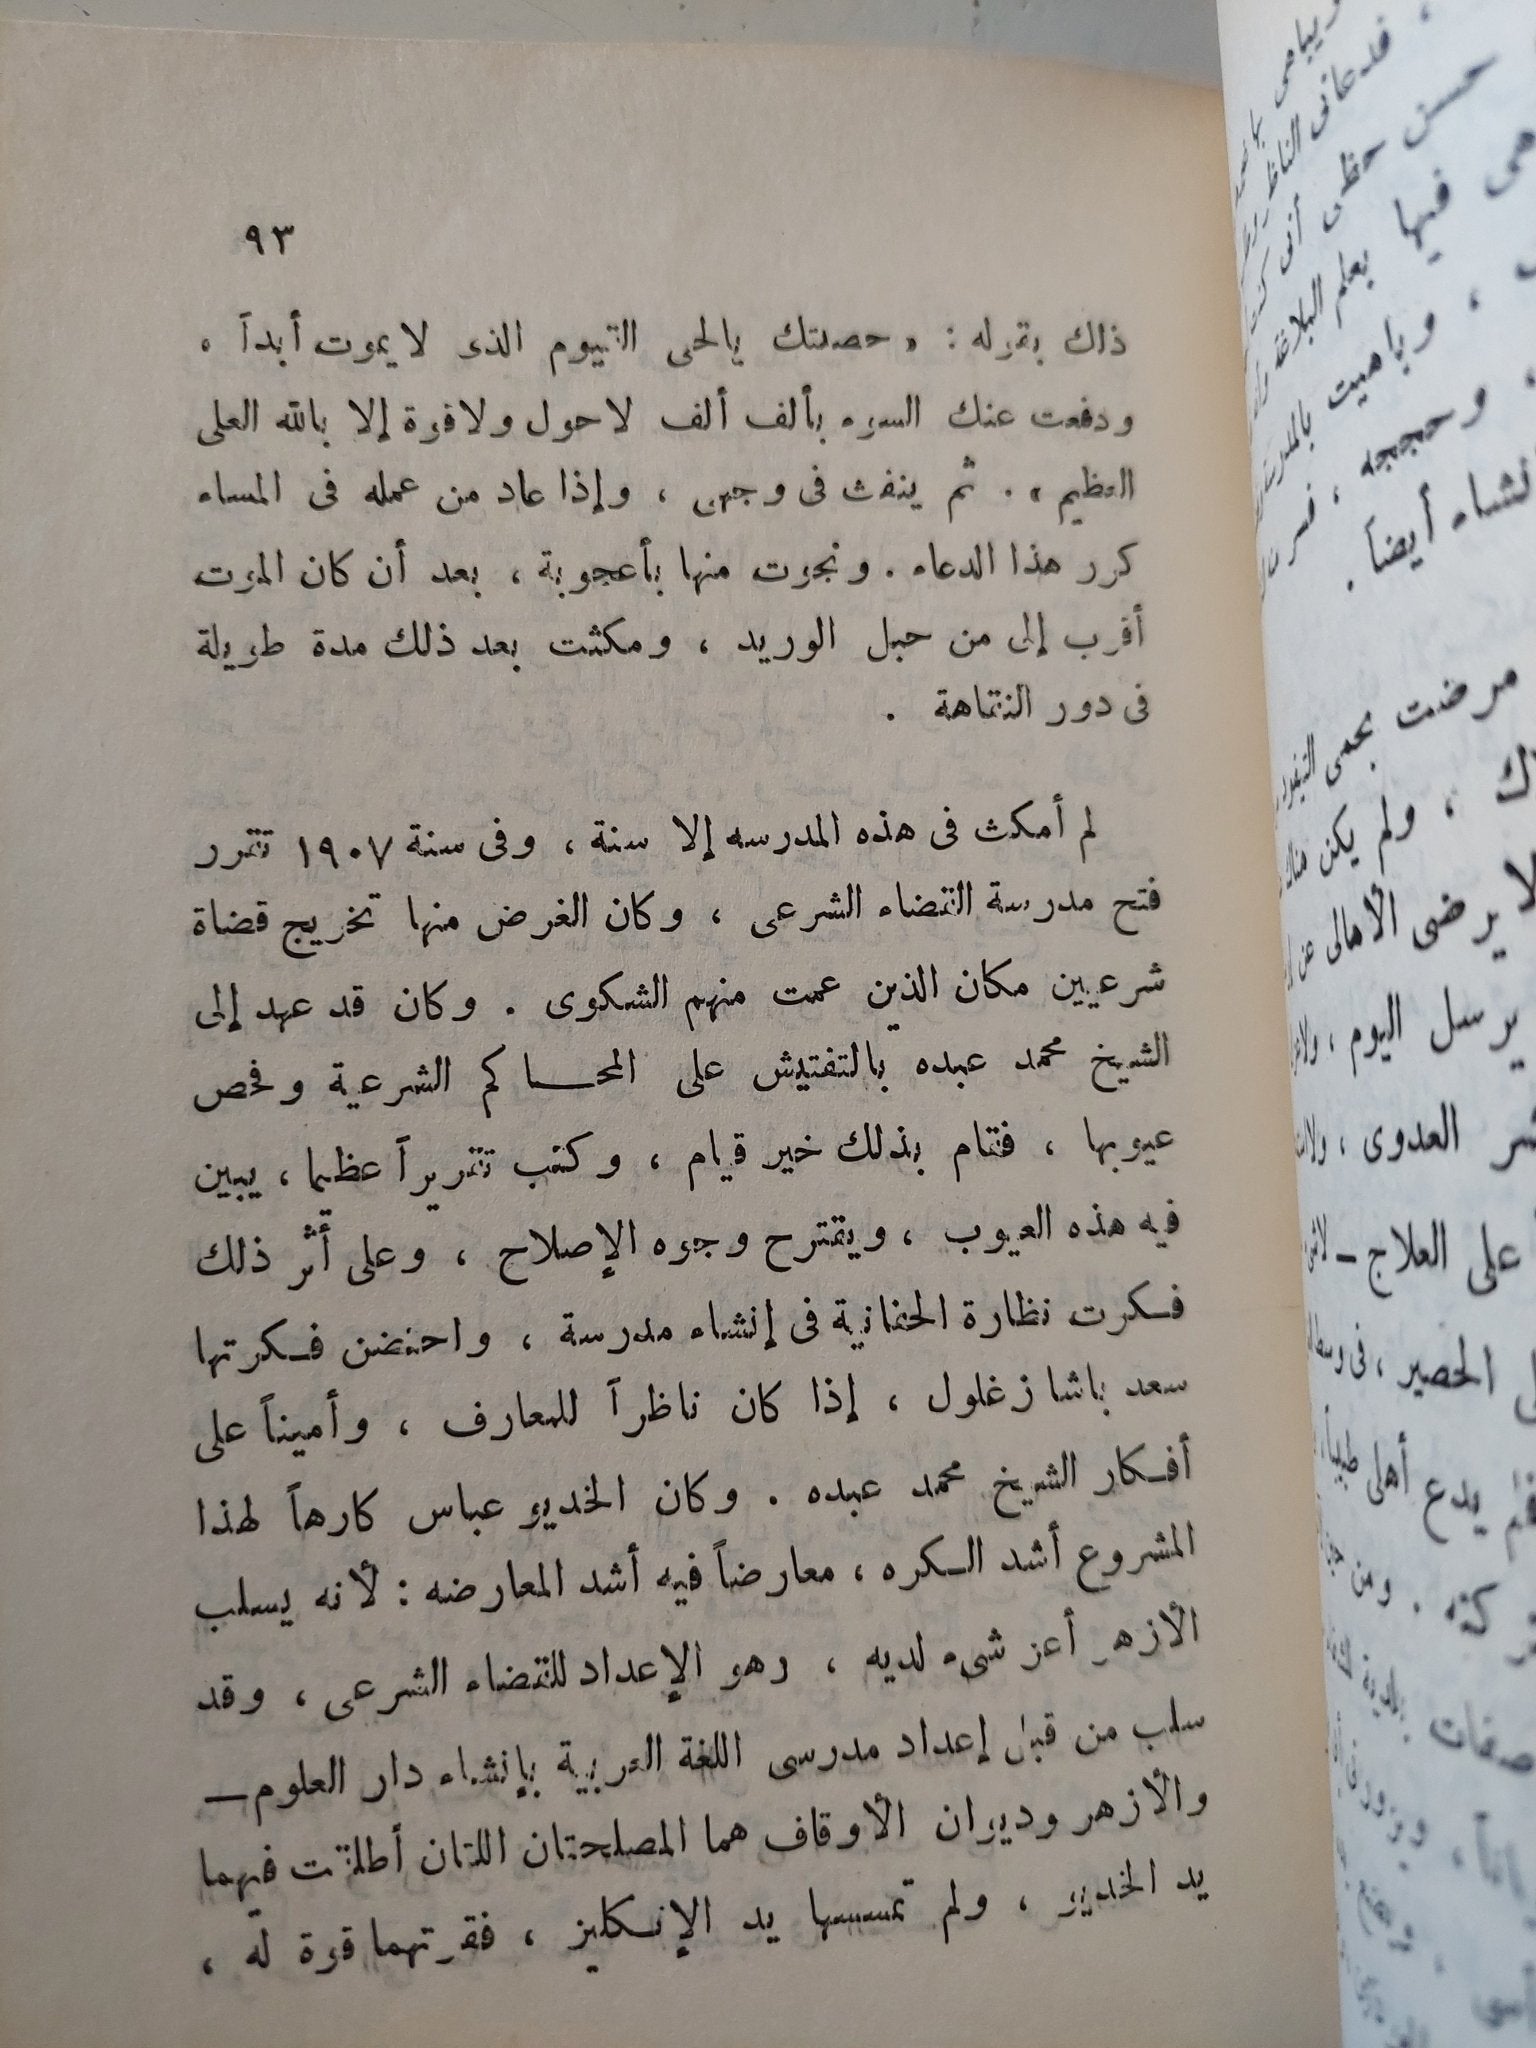 ٩٣
ذلك بقوله : « حصنتك بالحى القيوم الذى لا يموت أبداً ،
ودفعت عنك السوء بألف ألف لا حول ولا قوة إلا بالله العلى
العظيم » . ثم ينفث فى وجهى ، وإذا عاد من عمله فى المساء
كرر هذا الدعاء . ونجوت منها بأعجوبة ، بعد أن كان الموت
أقرب إلى من حبل الوريد ، ومكثت بعد ذلك مدة طويلة
فى دور النقاهة .
لم أمكث فى هذه المدرسه إلا سنة ، وفى سنة ١٩٠٧ تقرر
فتح مدرسة القضاء الشرعى ، وكان الغرض منها تخريج قضاة
شرعيين مكان الذين عمت منهم الشكوى . وكان قد عهد إلى
الشيخ محمد عبده بالتفتيش على المحاكم الشرعية وفحص
عيوبها ، فقام بذلك خير قيام ، وكتب تقريراً عظيما ، يبين
فيه هذه العيوب ، ويقترح وجوه الإصلاح ، وعلى أثر ذلك
فكرت نظارة الحقانية فى إنشاء مدرسة ، واحتضن فكرتها
سعد باشا زغلول ، إذا كان ناظراً للمعارف ، وأميناً على
أفكار الشيخ محمد عبده . وكان الخديو عباس كارهاً لهذا
المشروع أشد الكره ، معارضاً فيه أشد المعارضه : لأنه يسلب
الأزهر أعز شىء لديه ، وهو الإعداد للقضاء الشرعى ، وقد
سلب من قبل إعداد مدرسى اللغة العربية بإنشاء دار العلوم —
والأزهر وديوان الأوقاف هما المصلحتان اللتان أطلقت فيهما
يد الخديو ، ولم تمسسها يد الإنكليز ، فقوتهما قوة له ،
فدعانى الناظر
حسن حظى أنى كنت
فيها بعلم البلاغة
، وباهيت بالمدرسة
، وحججه ، فسر
أيضاً .
مرضت بحمى التيفود
، ولم يكن هناك
يرضى الأهالى عن
يرسل اليوم ،
العدوى ،
على العلاج —
الحصير ، فى وسط
يدع أهلى طبيباً
. ومن